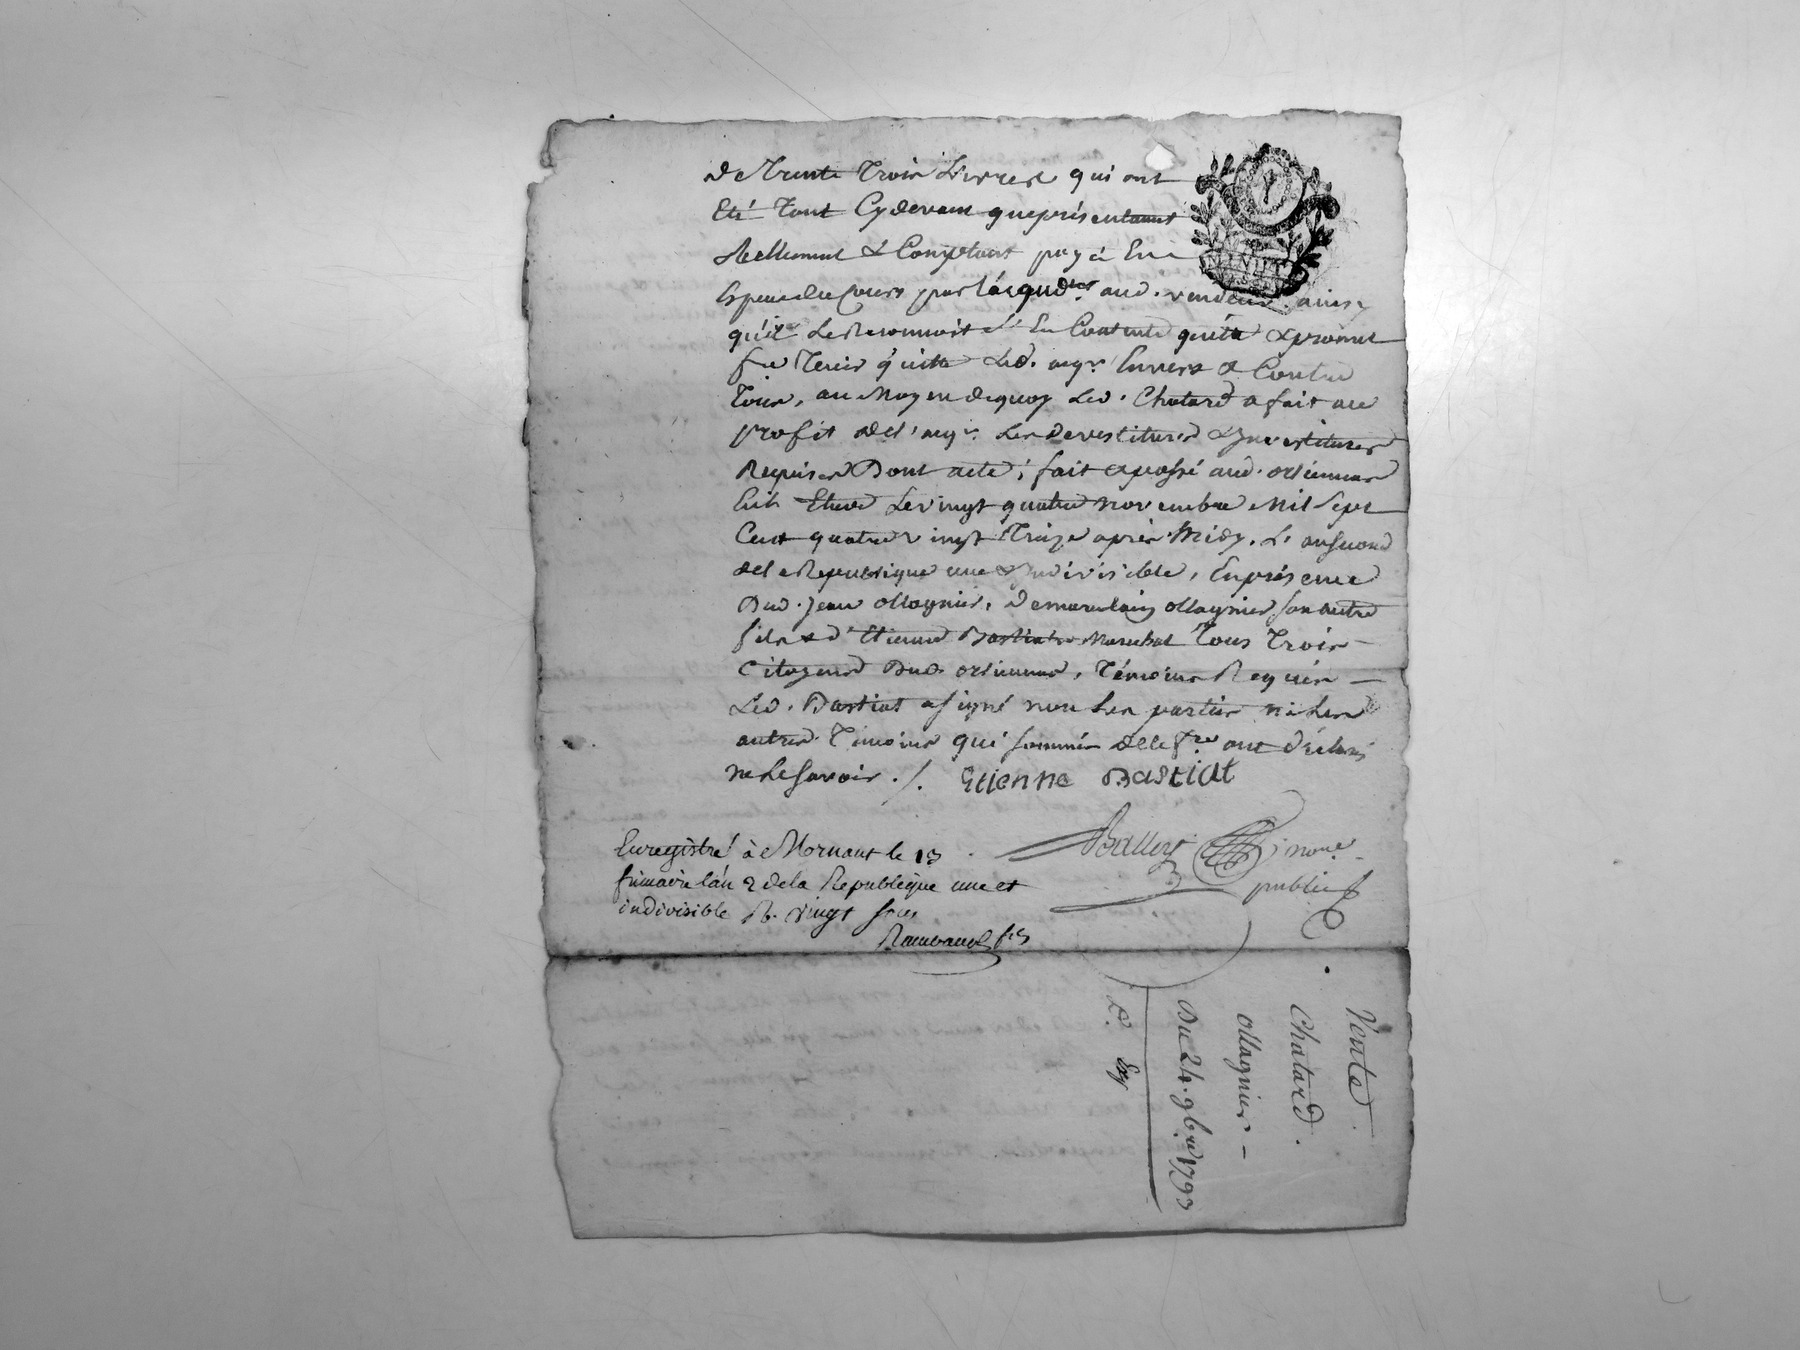 de Trente Trois Livres qui ont
Eté Tant Cydevant que présentement
Réellement & Comptant payé En
Especes du Cours par l'acquéreur aud. vendeur ainsy
qu'il Le Reconnoit s'En Contente quitte & promet
fre Tenir quitte Led. aqr. Envers & Contre
Tous, au Moyen de quoy Led. Chatard a fait au
profit de l'aqr. Les devestitures & Investitures
Requises Dont acte, fait & passé aud. orlienas
Etude Le vingt quatre novembre Mil Sept
Cent quatre vingt Treize après Midy. L'an second
de la Republique une & Indivisible, En présence
Dud. Jean ollagnier, ollagnier son autre
fils & d'Etienne Bastiat Marechal Tous Trois
Citoyens Dud. orlienas, Témoins Requis
Led. Bastiat a signé non Les parties ni Les
autres Témoins qui sommés de le fre ont déclaré
ne Le savoir ./. Etienne Bastiat
Balley nore
public
Enregistré à Mornant le 13
frimaire l'an 2 de la Republique une et
indivisible R. vingt sous
Vente
Chatard.
ollagnier –
Du 24. 9bre 1793
Ex